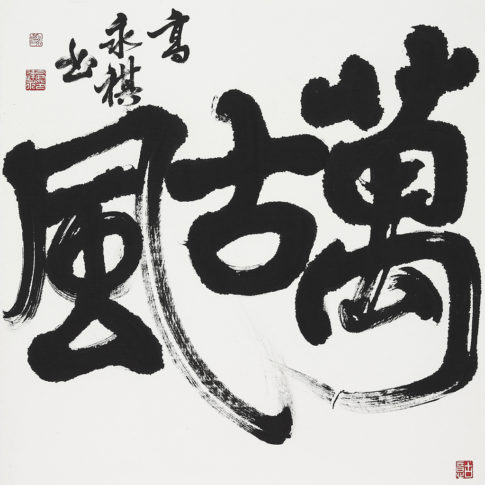 萬古風
高
永祺
书